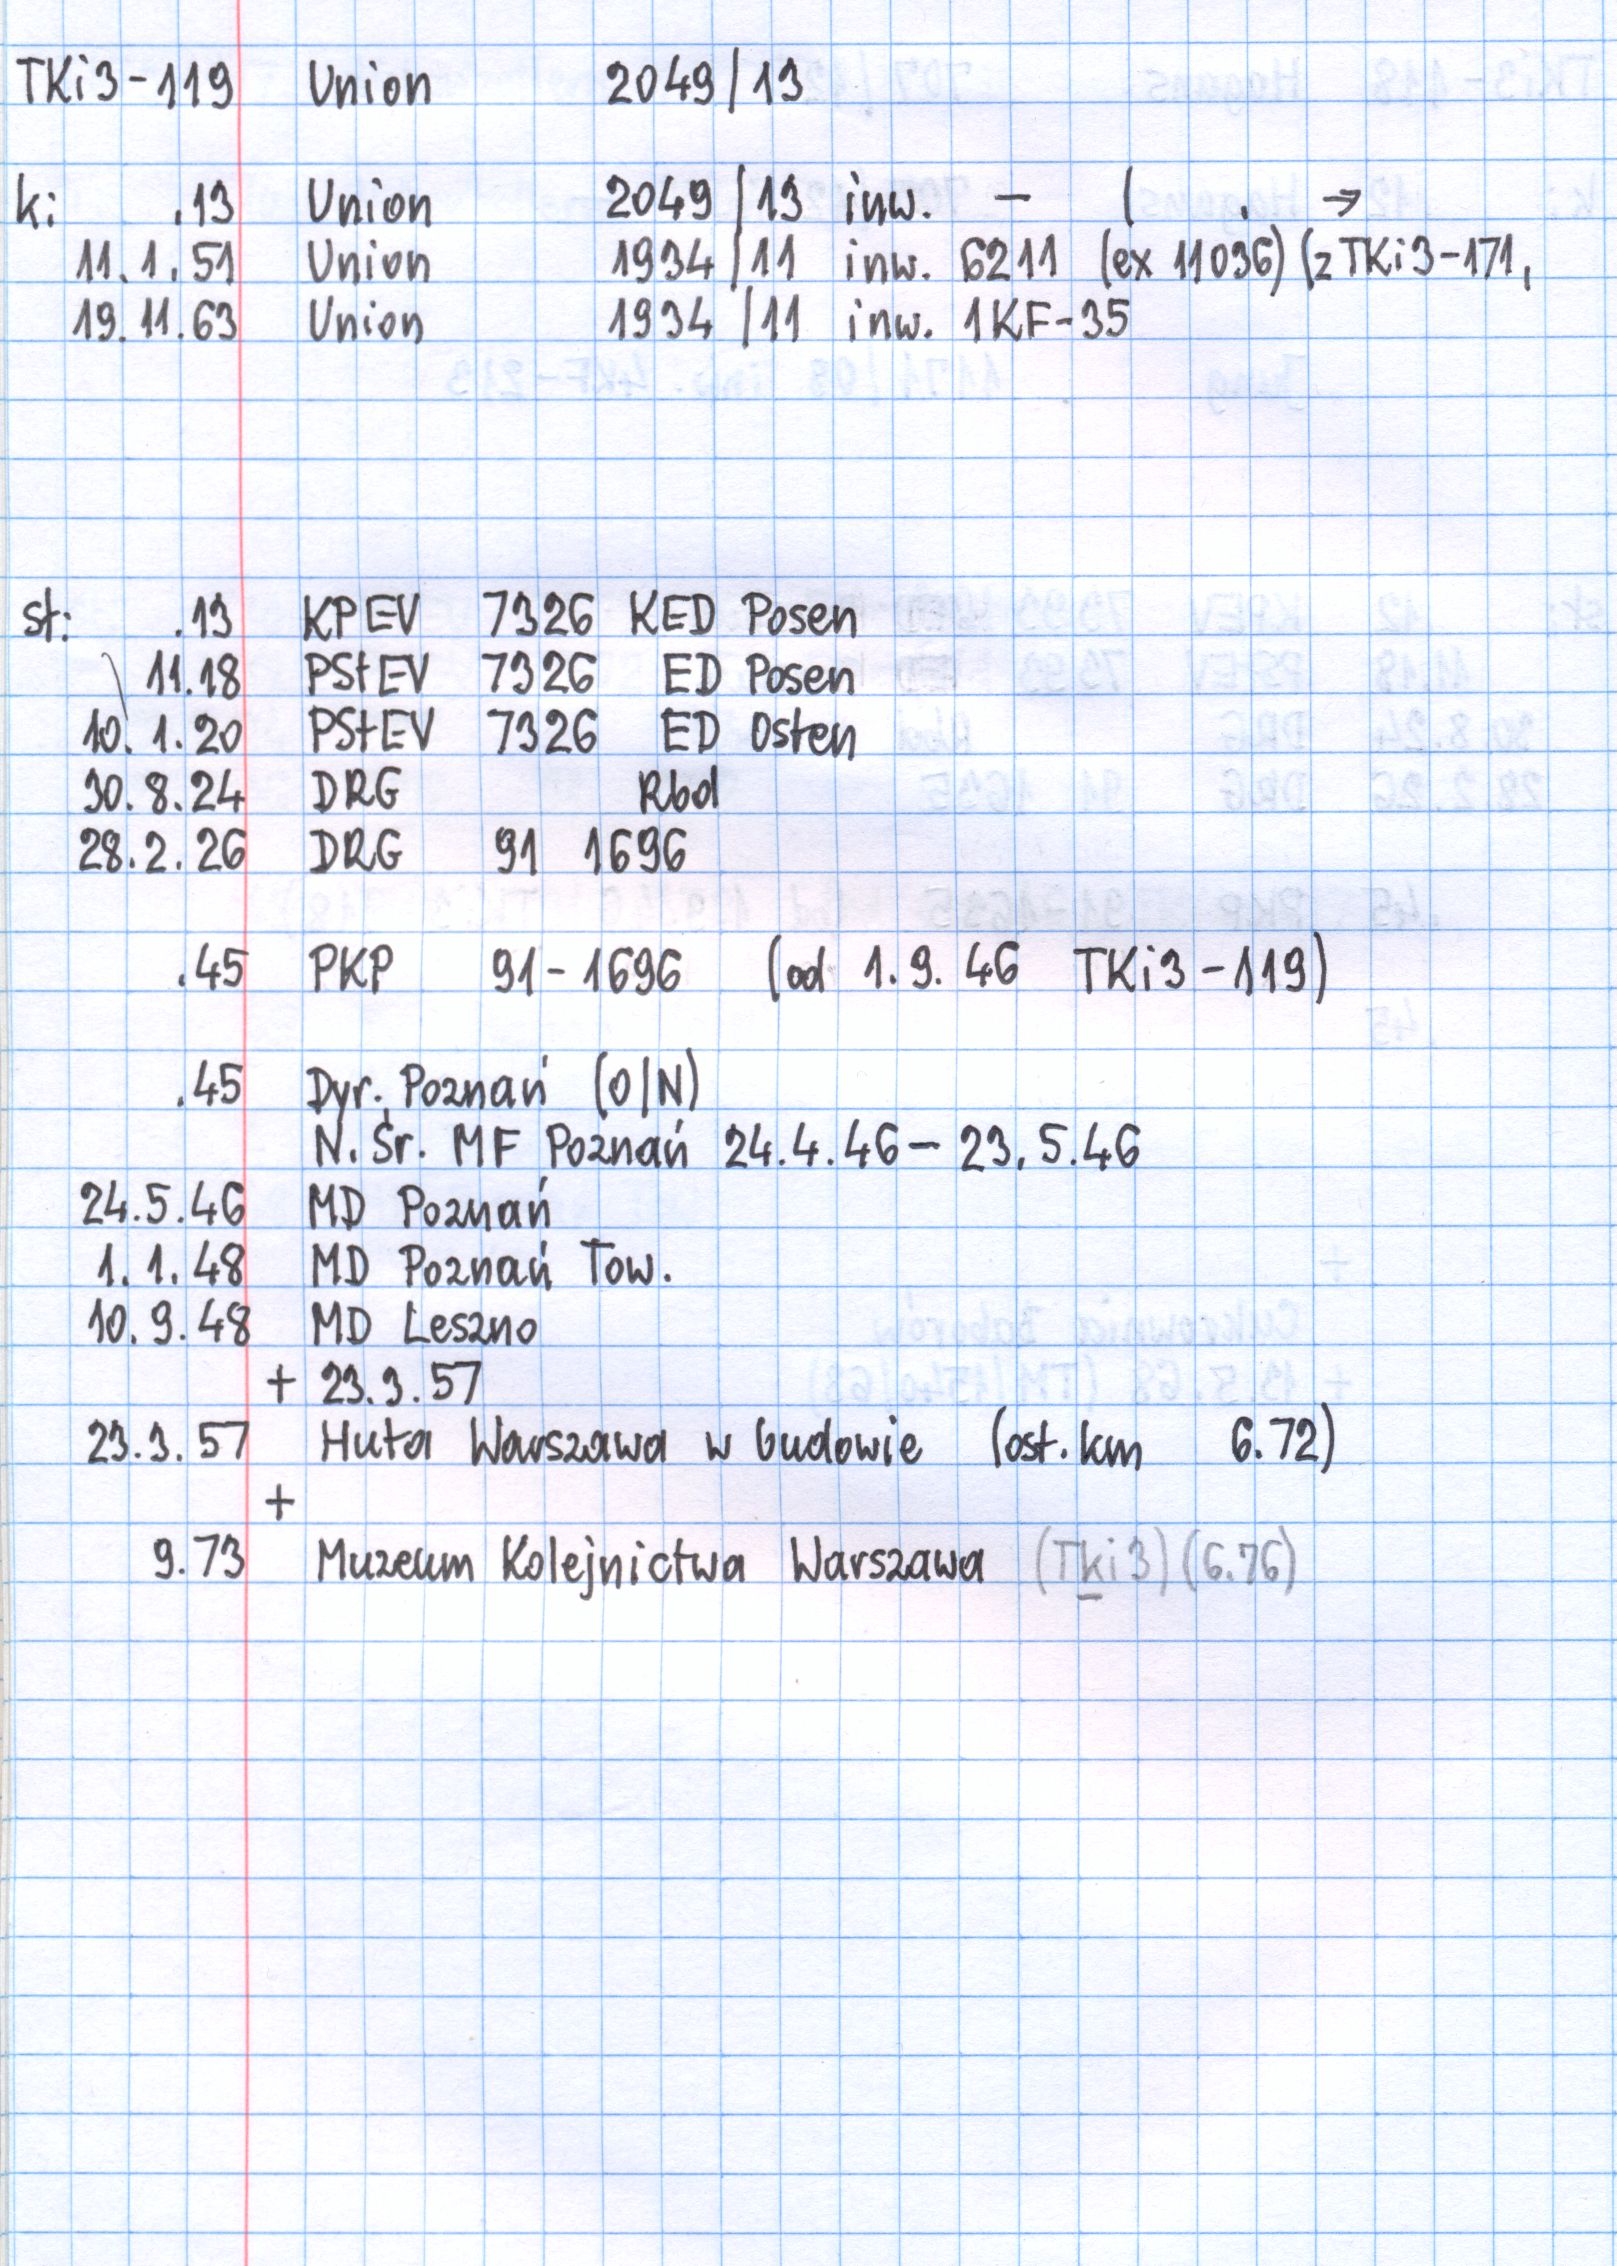 TKi3-119 Union 2049/13
k: .13 Union 2049/13 inw. – ( . →
11.1.51 Union 1934/11 inw. 6211 (ex 11036) (z TKi3-171,
19.11.63 Union 1934/11 inw. 1KF-35
st: .13 KPEV 7326 KED Posen
11.18 PStEV 7326 ED Posen
10.1.20 PStEV 7326 ED Osten
30.8.24 DRG Rbd
28.2.26 DRG 91 1696
.45 PKP 91-1696 (od 1.9.46 TKi3-119)
.45 Dyr. Poznań (O/N)
N. Śr. MF Poznań 24.4.46 – 23.5.46
24.5.46 MD Poznań
1.1.48 MD Poznań Tow.
10.9.48 MD Leszno
+ 23.3.57
23.3.57 Huta Warszawa w budowie (ost. km 6.72)
+
9.73 Muzeum Kolejnictwa Warszawa (Tki3) (6.76)